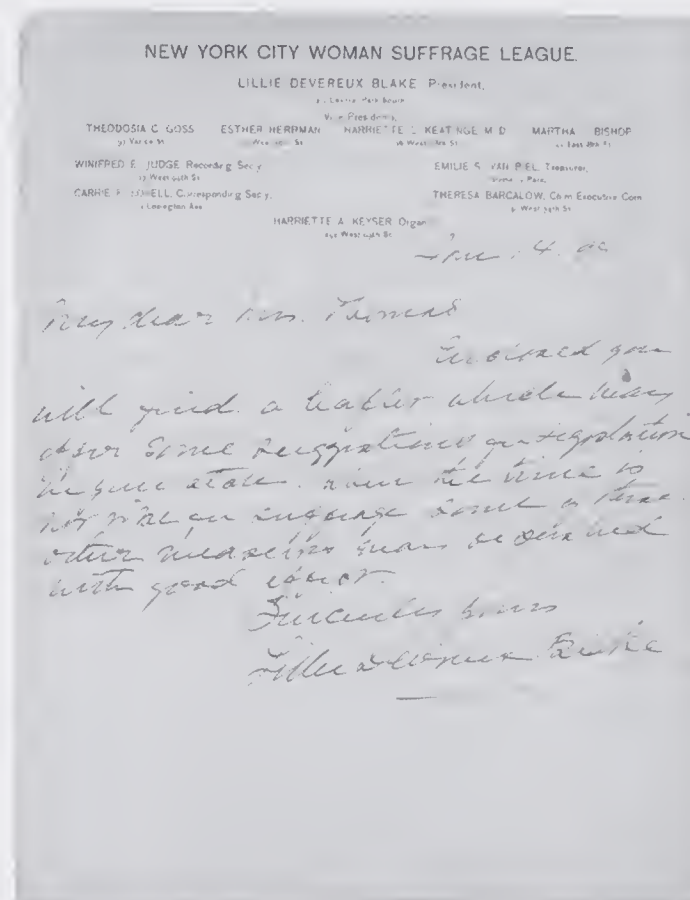 NEW YORK CITY WOMAN SUFFRAGE LEAGUE.
LILLIE DEVEREUX BLAKE President,
Central Park South
Vice Presidents,
THEODOSIA C. GOSS ESTHER HERRMAN HARRIETTE C. KEATINGE M D MARTHA BISHOP
West St East St
WINIFRED E. JUDGE Recording Secy EMILIE S. VAN BIEL, Treasurer,
West St Park,
CARRIE Corresponding Secy. THERESA BARCALOW, Chm Executive Com
Lexington Ave West St
HARRIETTE A. KEYSER Organ
West St
Jan. 4.
My dear Mrs. Thomas
Enclosed you
will find a leaflet which may
offer some suggestions on legislation
in your state. When the time is
not ripe for suffrage some of these
other measures may be pushed
with good effect.
Sincerely yours
Lillie Devereux Blake